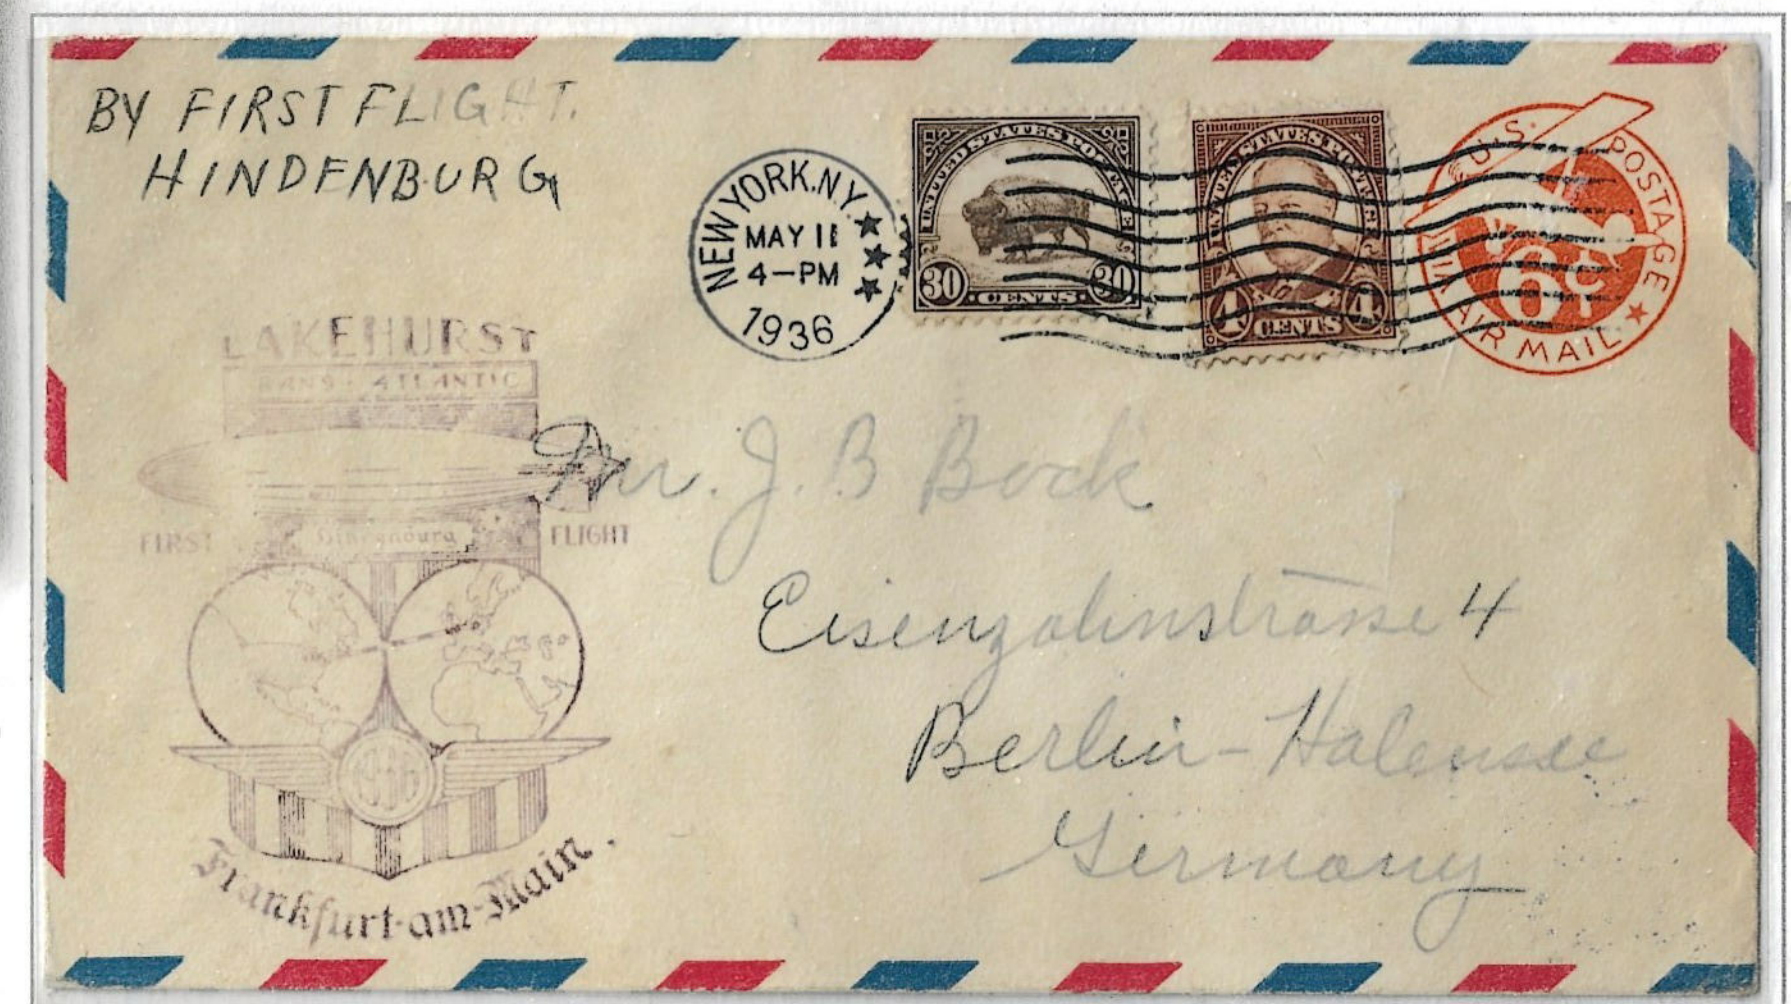 BY FIRST FLIGHT.
HINDENBURG
NEW YORK, N.Y.
MAY 11
4-PM
1936
UNITED STATES POSTAGE
30 CENTS 30
UNITED STATES POSTAGE
4 CENTS 4
U.S. POSTAGE
6¢
VIA AIR MAIL
LAKEHURST
TRANS-ATLANTIC
FIRST Hindenburg FLIGHT
1936
Frankfurt-am-Main.
Mr. J. B Bock
Eisenzahnstrasse 4
Berlin-Halensee
Germany